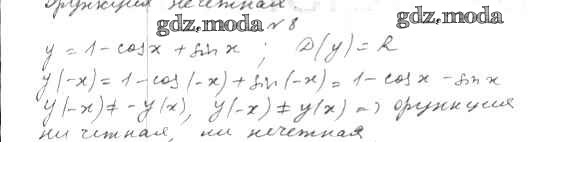 функция нечетная.
gdz.moda №8 gdz.moda
y = 1 - cos x + sin x ; D(y) = R
y(-x) = 1 - cos(-x) + sin(-x) = 1 - cos x - sin x
y(-x) ≠ -y(x), y(-x) ≠ y(x) => функция
ни четная, ни нечетная